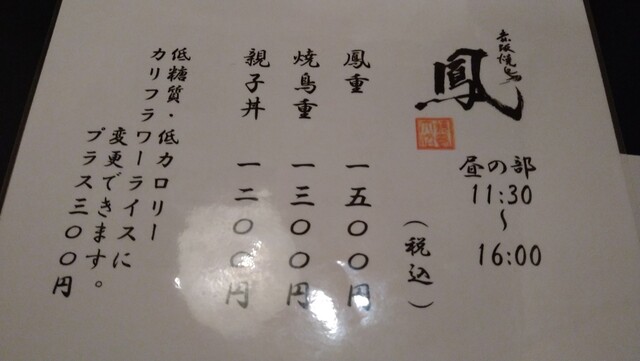 赤坂焼鳥
鳳
昼の部
11:30
〜
16:00
(税込)
鳳重 一五〇〇円
焼鳥重 一三〇〇円
親子丼 一二〇〇円
低糖質・低カロリー
カリフラワーライスに
変更できます。
プラス三〇〇円